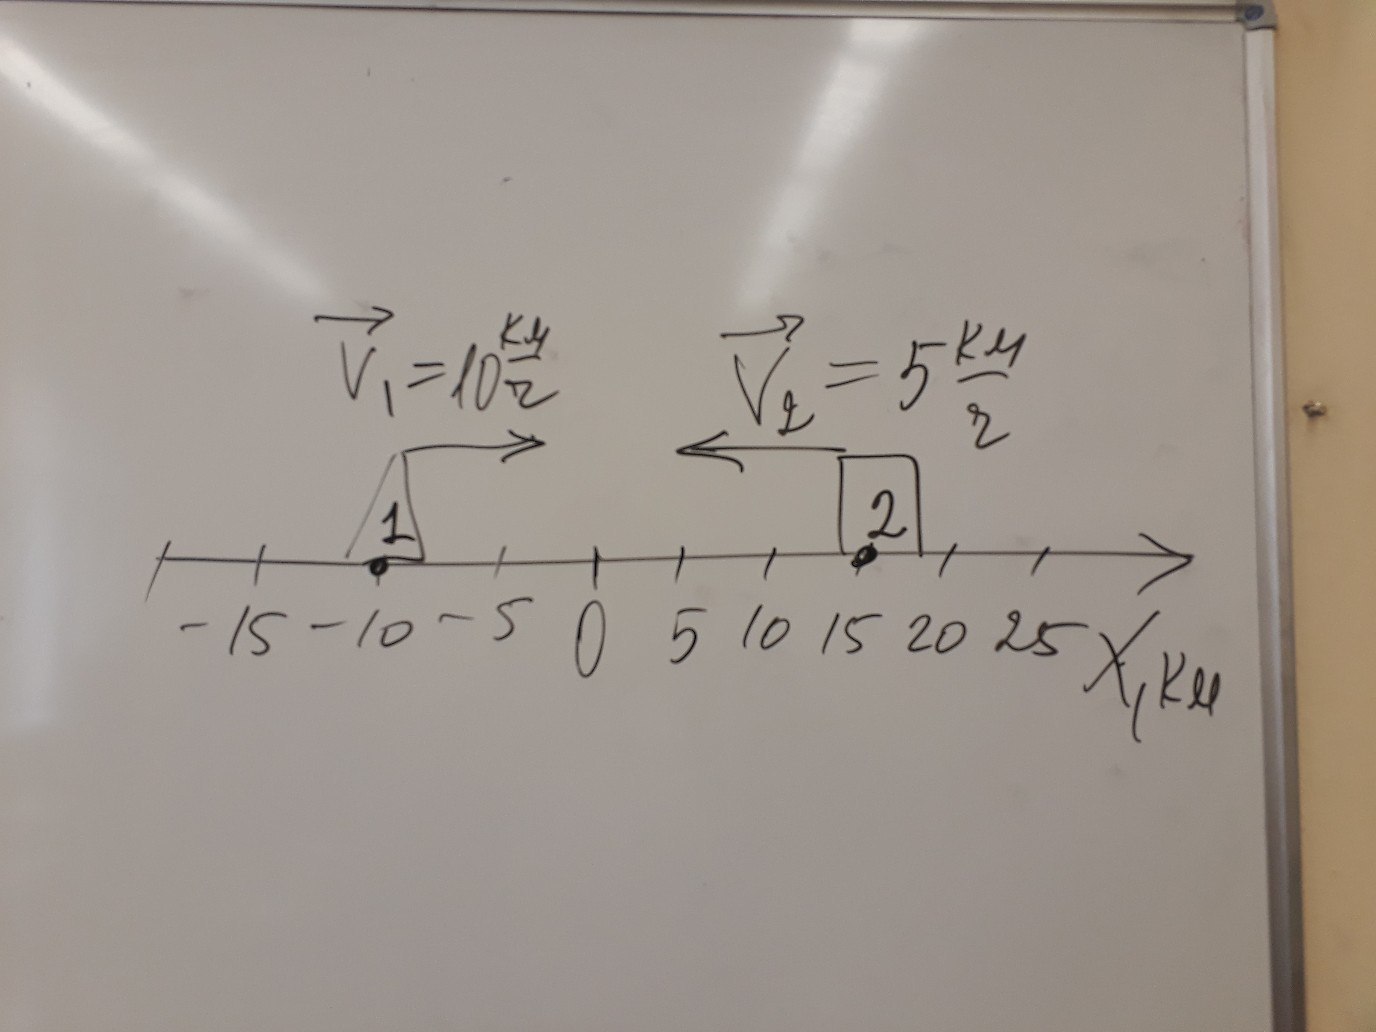 V₁ = 10 км/г
V₂ = 5 км/г
1
2
-15 -10 -5 0 5 10 15 20 25 X, км